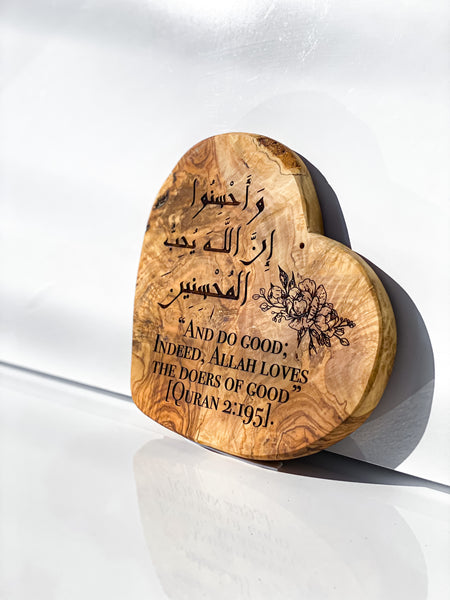 وَأَحْسِنُوا
إِنَّ اللَّهَ يُحِبُّ
الْمُحْسِنِينَ
“And do good;
Indeed, Allah loves
the doers of good”
[Quran 2:195].